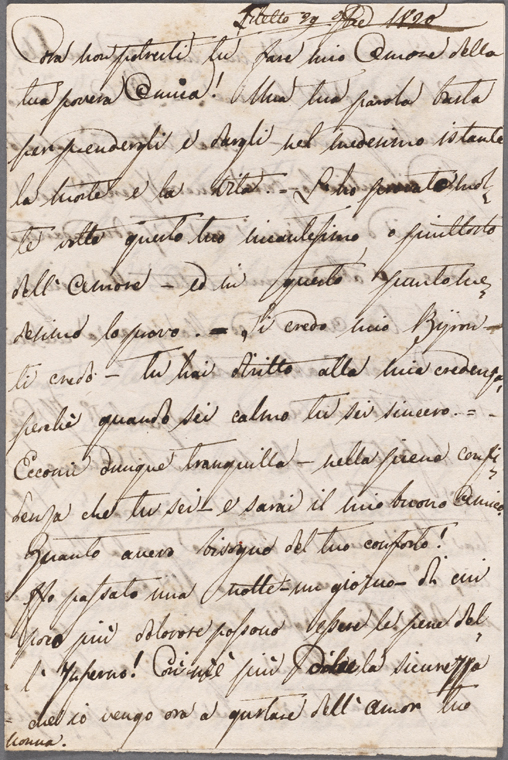 Filetto 29 9bre 1820
Cosa non potresti tu fare mio Amore della
tua povera Amica! Una tua parola basta
per prendergli e dargli nel medesimo istante
la morte e la vita - L'ho provato mol-
te volte questo tuo incantesimo o piuttosto
dell'Amore - ed in questo punto me-
desimo lo provo. - Ti credo mio Byron -
ti credo - tu hai diritto alla mia credenza,
perchè quando sei calmo tu sei sincero. = -
Eccomi dunque tranquilla - nella piena confi-
denza che tu sei - e sarai il mio buono Amico.
Quanto avevo bisogno del tuo conforto!
Ho passato una notte - un giorno - di cui
poco più dolorose possono essere le pene del-
l'Inferno! Così m'è più dolce la sicurezza
che io vengo ora a gustare dell'amor tuo